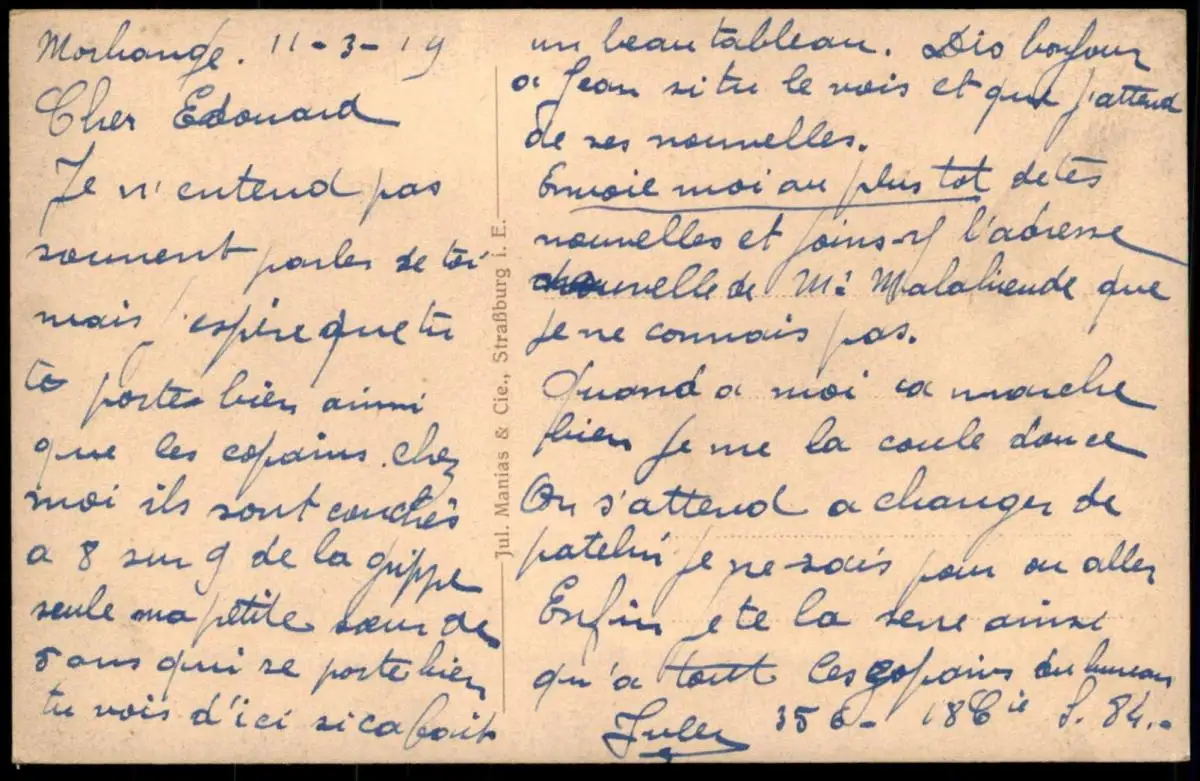 Morhange. 11-3-19
Cher Edouard
Je n'entend pas
souvent parler de toi
mais j'espère que tu
te portes bien ainsi
que les copains. chez
moi ils sont couchés
a 8 sur 9 de la grippe
seule ma petite soeur de
5 ans qui se porte bien
tu vois d'ici si ca fait
Jul. Manias & Cie., Straßburg i. E.
un beau tableau. Dis bonjour
a Jean si tu le vois et que j'attend
de ses nouvelles.
Envoie moi au plus tot de tes
nouvelles et joins-y l'adresse
nouvelle de Mr que
je ne connais pas.
Quand a moi ca marche
bien je me la coule douce
On s'attend a changer de
patelin je ne sais pour ou aller
Enfin je te la serre ainsi
qu'a tout les copains du bureau
Jules 356 - 18 Cie S. 84.-